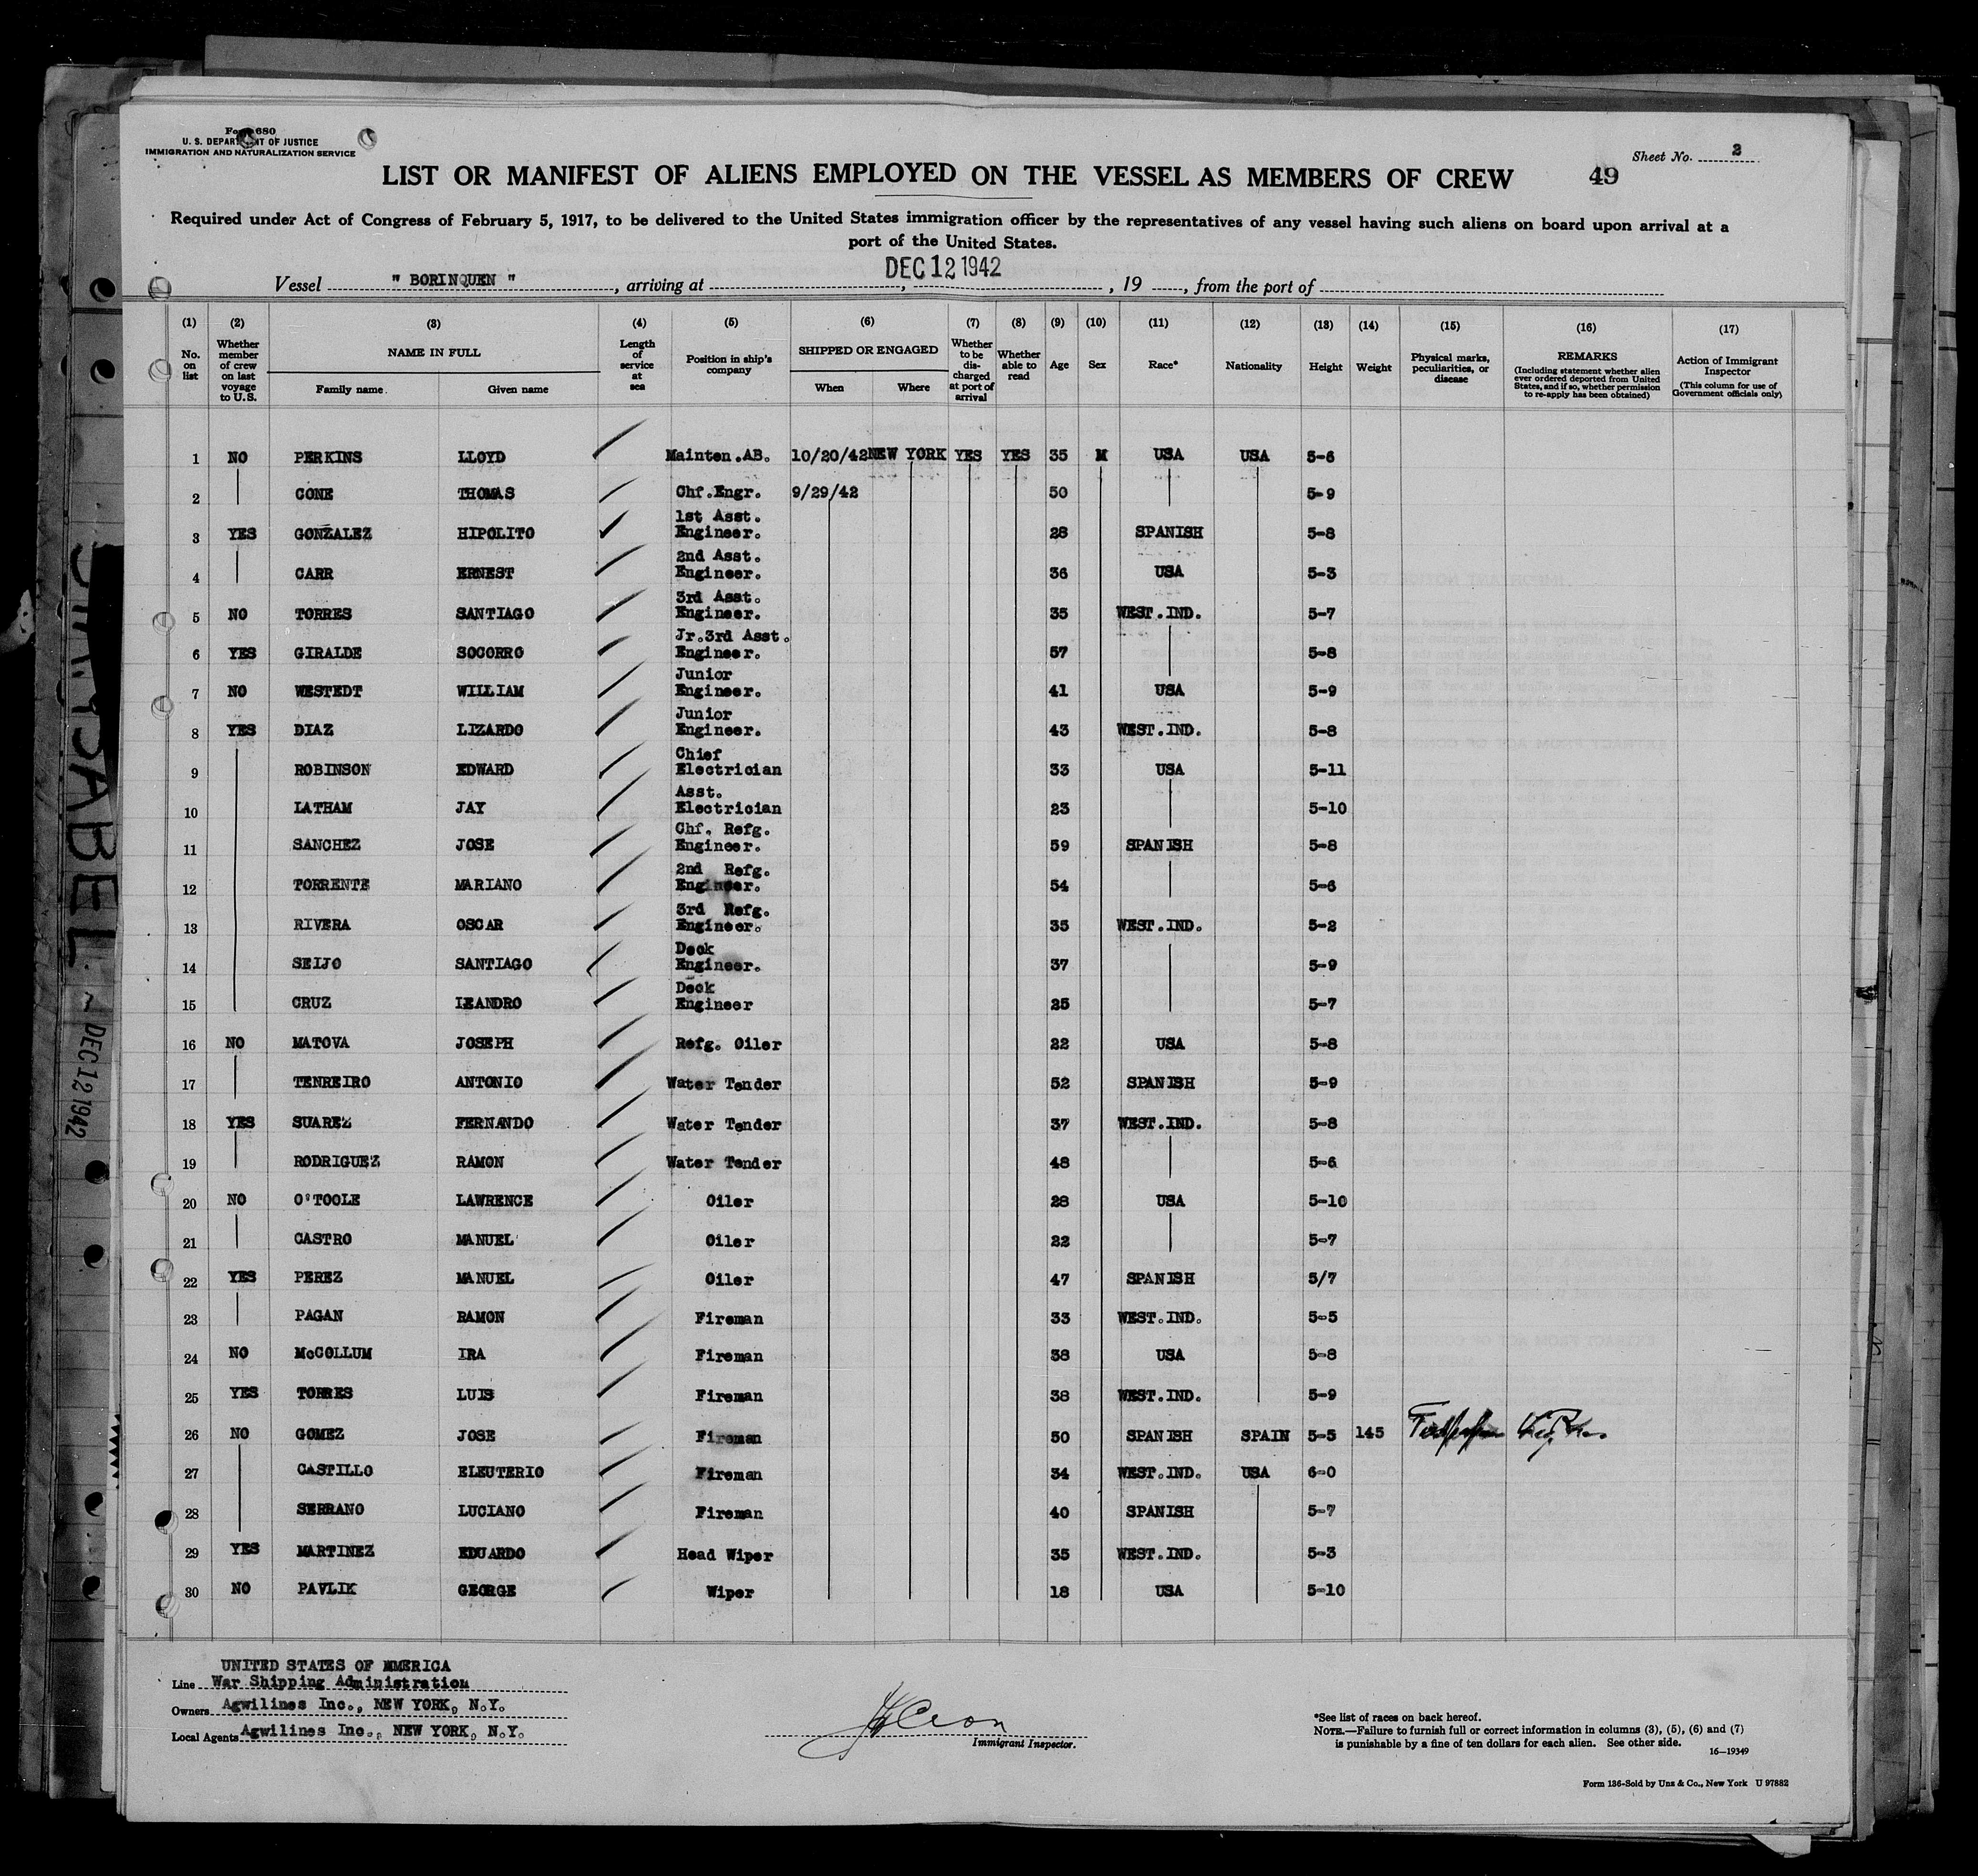 Form 680
U. S. DEPARTMENT OF JUSTICE
IMMIGRATION AND NATURALIZATION SERVICE
Sheet No. 2
LIST OR MANIFEST OF ALIENS EMPLOYED ON THE VESSEL AS MEMBERS OF CREW 49
Required under Act of Congress of February 5, 1917, to be delivered to the United States immigration officer by the representatives of any vessel having such aliens on board upon arrival at a
port of the United States.
DEC 12 1942
Vessel " BORINQUEN ", arriving at , , 19 , from the port of
(1) (2) (3) (4) (5) (6) (7) (8) (9) (10) (11) (12) (13) (14) (15) (16) (17)
No. on list
Whether member of crew on last voyage to U.S.
NAME IN FULL
Family name Given name
Length of service at sea
Position in ship's company
SHIPPED OR ENGAGED
When Where
Whether to be discharged at port of arrival
Whether able to read
Age Sex Race* Nationality Height Weight
Physical marks, peculiarities, or disease
REMARKS
(Including statement whether alien ever ordered deported from United States, and if so, whether permission to re-apply has been obtained)
Action of Immigrant Inspector
(This column for use of Government officials only)
1 NO PERKINS LLOYD Mainten.AB. 10/20/42 NEW YORK YES YES 35 M USA USA 5-6
2 CONE THOMAS Chf.Engr. 9/29/42 50 5-9
3 YES GONZALEZ HIPOLITO 1st Asst. Engineer. 28 SPANISH 5-8
4 CARR ERNEST 2nd Asst. Engineer. 36 USA 5-3
5 NO TORRES SANTIAGO 3rd Asst. Engineer. 35 WEST.IND. 5-7
6 YES GIRALDE SOCORRO Jr.3rd Asst. Engineer. 57 5-8
7 NO WESTEDT WILLIAM Junior Engineer. 41 USA 5-9
8 YES DIAZ LIZARDO Junior Engineer. 43 WEST.IND. 5-8
9 ROBINSON EDWARD Chief Electrician 33 USA 5-11
10 LATHAM JAY Asst. Electrician 23 5-10
11 SANCHEZ JOSE Chf. Refg. Engineer. 59 SPANISH 5-8
12 TORRENTE MARIANO 2nd Refg. Engineer. 54 5-6
13 RIVERA OSCAR 3rd Refg. Engineer. 35 WEST.IND. 5-2
14 SEIJO SANTIAGO Deck Engineer. 37 5-9
15 CRUZ LEANDRO Deck Engineer 25 5-7
16 NO MATOVA JOSEPH Refg. Oiler 22 USA 5-8
17 TENREIRO ANTONIO Water Tender 52 SPANISH 5-9
18 YES SUAREZ FERNANDO Water Tender 37 WEST.IND. 5-8
19 RODRIGUEZ RAMON Water Tender 48 5-6
20 NO O'TOOLE LAWRENCE Oiler 28 USA 5-10
21 CASTRO MANUEL Oiler 22 5-7
22 YES PEREZ MANUEL Oiler 47 SPANISH 5/7
23 PAGAN RAMON Fireman 33 WEST.IND. 5-5
24 NO McCOLLUM IRA Fireman 38 USA 5-8
25 YES TORRES LUIS Fireman 38 WEST.IND. 5-9
26 NO GOMEZ JOSE Fireman 50 SPANISH SPAIN 5-5 145
27 CASTILLO ELEUTERIO Fireman 34 WEST.IND. USA 6-0
28 SERRANO LUCIANO Fireman 40 SPANISH 5-7
29 YES MARTINEZ EDUARDO Head Wiper 35 WEST.IND. 5-3
30 NO PAVLIK GEORGE Wiper 18 USA 5-10
UNITED STATES OF AMERICA
Line War Shipping Administration
Owners Agwilines Inc., NEW YORK, N.Y.
Local Agents Agwilines Inc., NEW YORK, N.Y.
Immigrant Inspector.
*See list of races on back hereof.
NOTE.—Failure to furnish full or correct information in columns (3), (5), (6) and (7)
is punishable by a fine of ten dollars for each alien. See other side.
16—19349
Form 136-Sold by Unz & Co., New York U 97882
DEC 12 1942